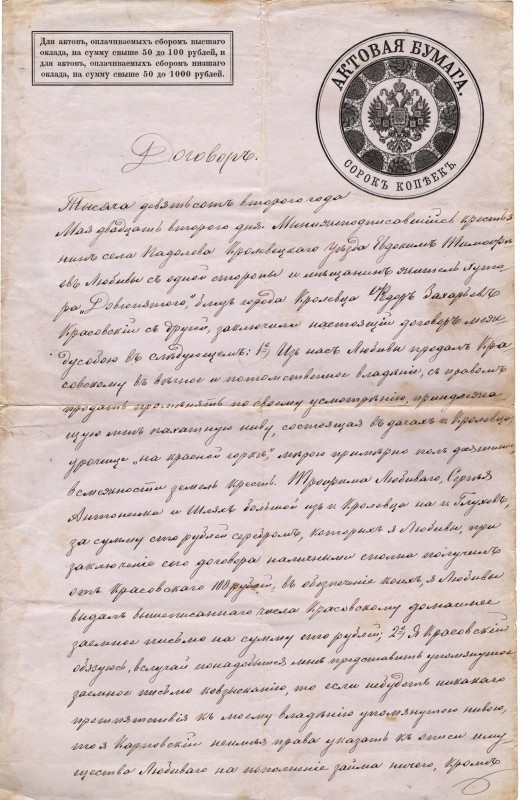 Для актовъ, оплачиваемыхъ сборомъ высшаго
оклада, на сумму свыше 50 до 100 рублей, и
для актовъ, оплачиваемыхъ сборомъ низшаго
оклада, на сумму свыше 50 до 1000 рублей.
АКТОВАЯ БУМАГА.
СОРОКЪ КОПѢЕКЪ.
Договоръ.
Тысяча девятьсотъ второго года
Мая двадцать второго дня. Мы нижеподписавшіеся кресть
янинъ села Кролевецкого Уѣзда Евдокимъ
евъ Любивый съ одной стороны и мѣщанинъ житель хуто
ра "Довгопятого", близъ города Кролевца Ѳедоръ Захарьевъ
Красовскій съ другой, заключили настоящій договоръ меж
ду собою въ слѣдующемъ: 1е/ Изъ насъ Любивый продалъ Кра
совскому въ вѣчное и потомственное владѣніе, съ правомъ
продать промѣнять по своему усмотрѣнію, принадлежа
щую мнѣ пахатную ниву, состоящая въ дачахъ г. Кролевца
урочище "на красной горкѣ", мѣрою примѣрно полъ десятины
въ смежности земель крест. Трофима Любиваго, Сергѣя
Антоненка и Шляхъ большой изъ г. Кролевца на г. Глуховъ,
за сумму сто рублей серебромъ, которыхъ я Любивый, при
заключеніе сего договора наличными сполна получилъ
отъ Красовскаго 100 рублей, въ обезпеченіе коихъ я Любивый
выдалъ вышеписаннаго числа Красовскому домашнее
заемное письмо на сумму сто рублей; 2е/ Я Красовскій
обязуюсь, вслучаи понадобиться мнѣ представить упомянутое
заемное письмо ковзысканію, то если небудетъ никакаго
препятствія къ моему владѣнію упомянутою нивою,
то я неимѣю права указать къ описи иму
щества Любиваго на пополненіе займа ничего, кромѣ